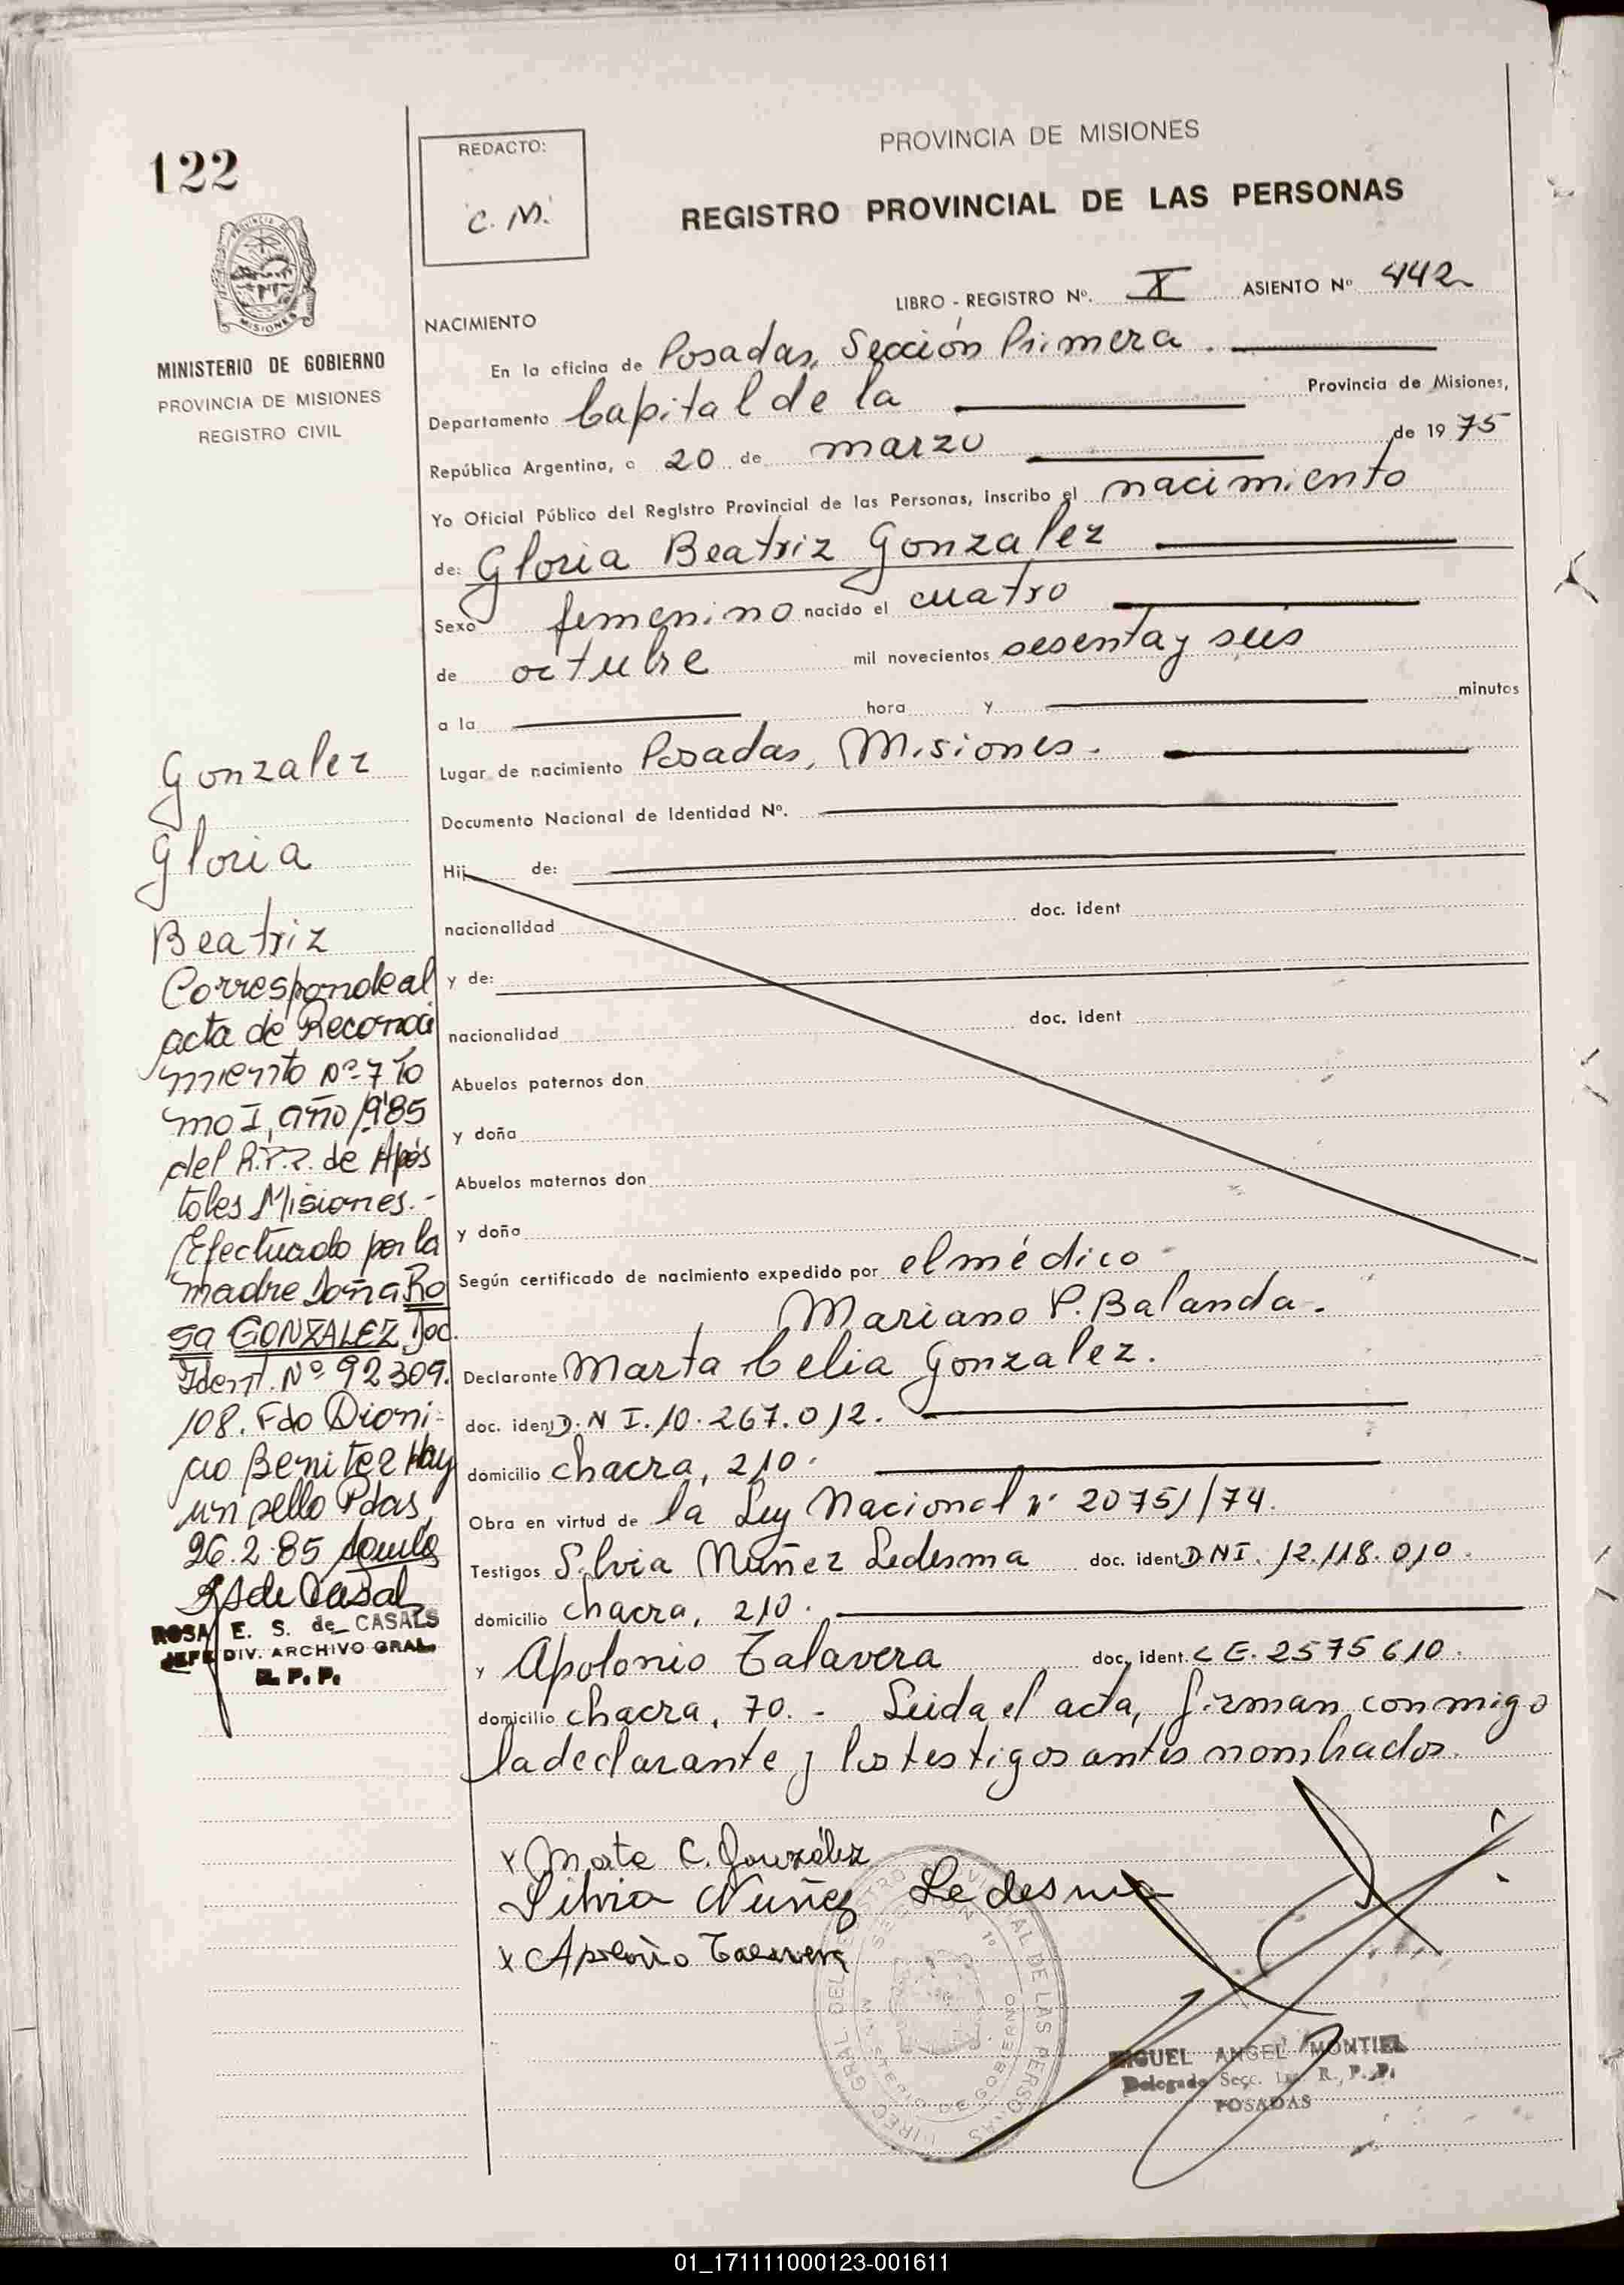 122
REDACTO:
C. M.
PROVINCIA DE MISIONES
REGISTRO PROVINCIAL DE LAS PERSONAS
PROVINCIA DE
MISIONES
MINISTERIO DE GOBIERNO
PROVINCIA DE MISIONES
REGISTRO CIVIL
LIBRO - REGISTRO Nº. X ASIENTO Nº 442
NACIMIENTO
En la oficina de Posadas, Sección Primera.
Departamento Capital de la Provincia de Misiones,
República Argentina, a 20 de marzo de 1975
Yo Oficial Público del Registro Provincial de las Personas, inscribo el nacimiento
de: Gloria Beatriz Gonzalez
Sexo femenino nacido el cuatro
de octubre mil novecientos sesenta y seis
a la hora y minutos
Lugar de nacimiento Posadas, Misiones.
Documento Nacional de Identidad Nº.
Hij de:
nacionalidad doc. ident
y de:
nacionalidad doc. ident
Abuelos paternos don
y doña
Abuelos maternos don
y doña
Según certificado de nacimiento expedido por el médico
Mariano P. Balanda.
Declarante Marta Celia Gonzalez.
doc. ident D.N I. 10.267.012.
domicilio chacra, 210.
Obra en virtud de la Ley Nacional nº 20751/74.
Testigos Silvia Nuñez Ledesma doc. ident DNI. 12.118.010.
domicilio chacra, 210.
y Apolonio Talavera doc. ident. C E. 2575610.
domicilio chacra, 70. - Leida el acta, firman conmigo
la declarante y los testigos antes nombrados.
x Marta C. González
Silvia Nuñez Ledesma
x Apolonio Talavera
MINISTERIO DE GOBIERNO
MIGUEL ANGEL MONTIEL
Delegado Secc. 1ra. R. P. P.
POSADAS
Gonzalez
Gloria
Beatriz
Corresponde al
acta de Reconoci
miento Nº 7 To
mo I, año 1985
del R.P.P. de Após
toles Misiones.-
Efectuado por la
madre Doña Ro
sa GONZALEZ Doc.
Ident. Nº 92309.
108. Fdo Dioni-
cio Benitez Hay
un sello Pdas,
26.2.85
ROSA E. S. de CASALS
JEFE DIV. ARCHIVO GRAL.
R. P. P.
01_171111000123-001611